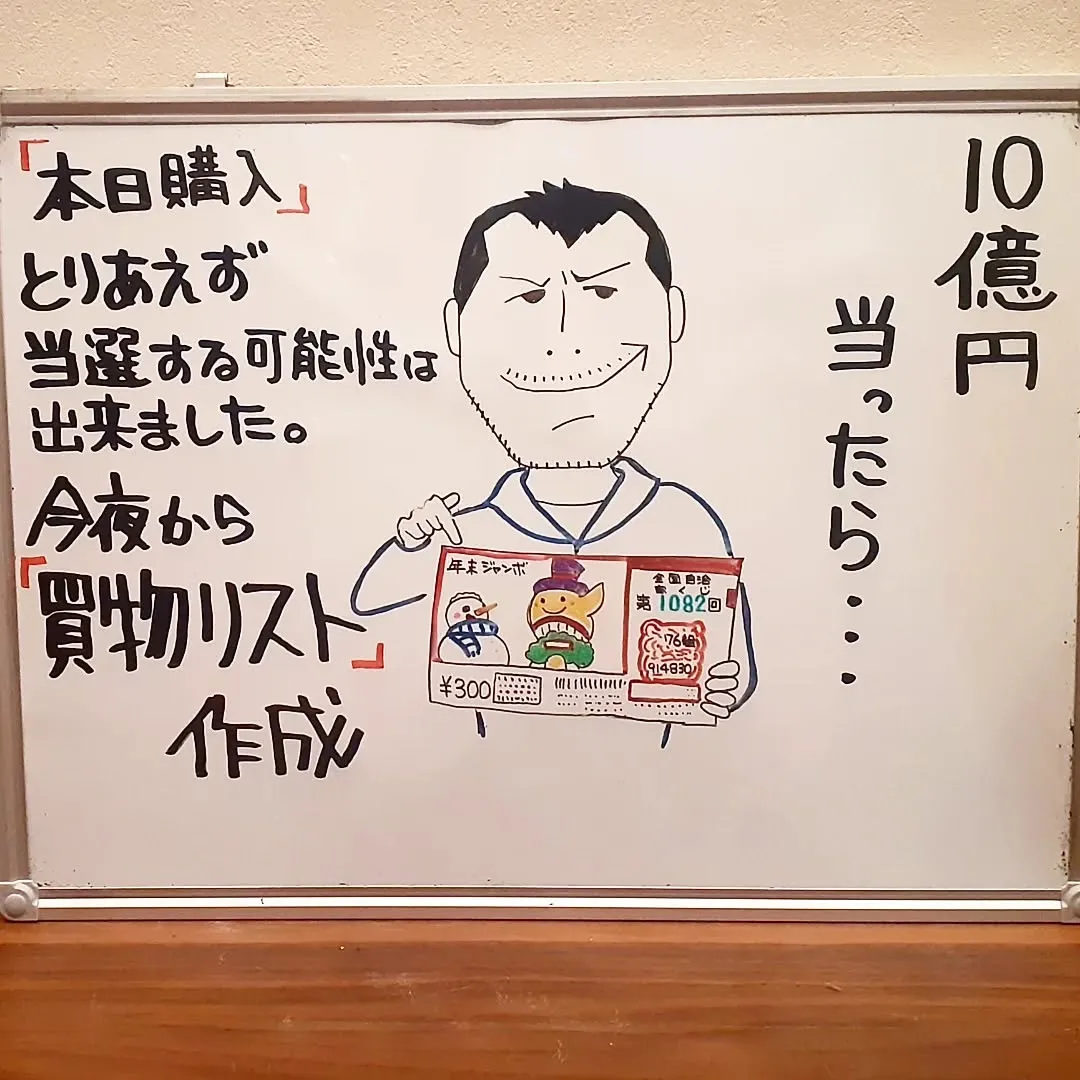 10億円
当ったら・・・
「本日購入」
とりあえず
当選する可能性は
出来ました。
今夜から
「買物リスト」
作成
年末ジャンボ
¥300
全国自治
宝くじ
第1082回
76組
914830